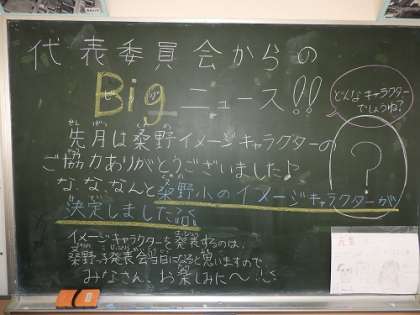 代表委員会からの
Big ニュース!!
どんなキャラクター
でしょうね?
?
先月は桑野イメージキャラクターの
ご協力ありがとうございました♪
な、な、なんと桑野小のイメージキャラクターが
決定しました
イメージキャラクターを発表するのは、
桑野っ子発表会当日になると思いますので
みなさん、お楽しみに〜!